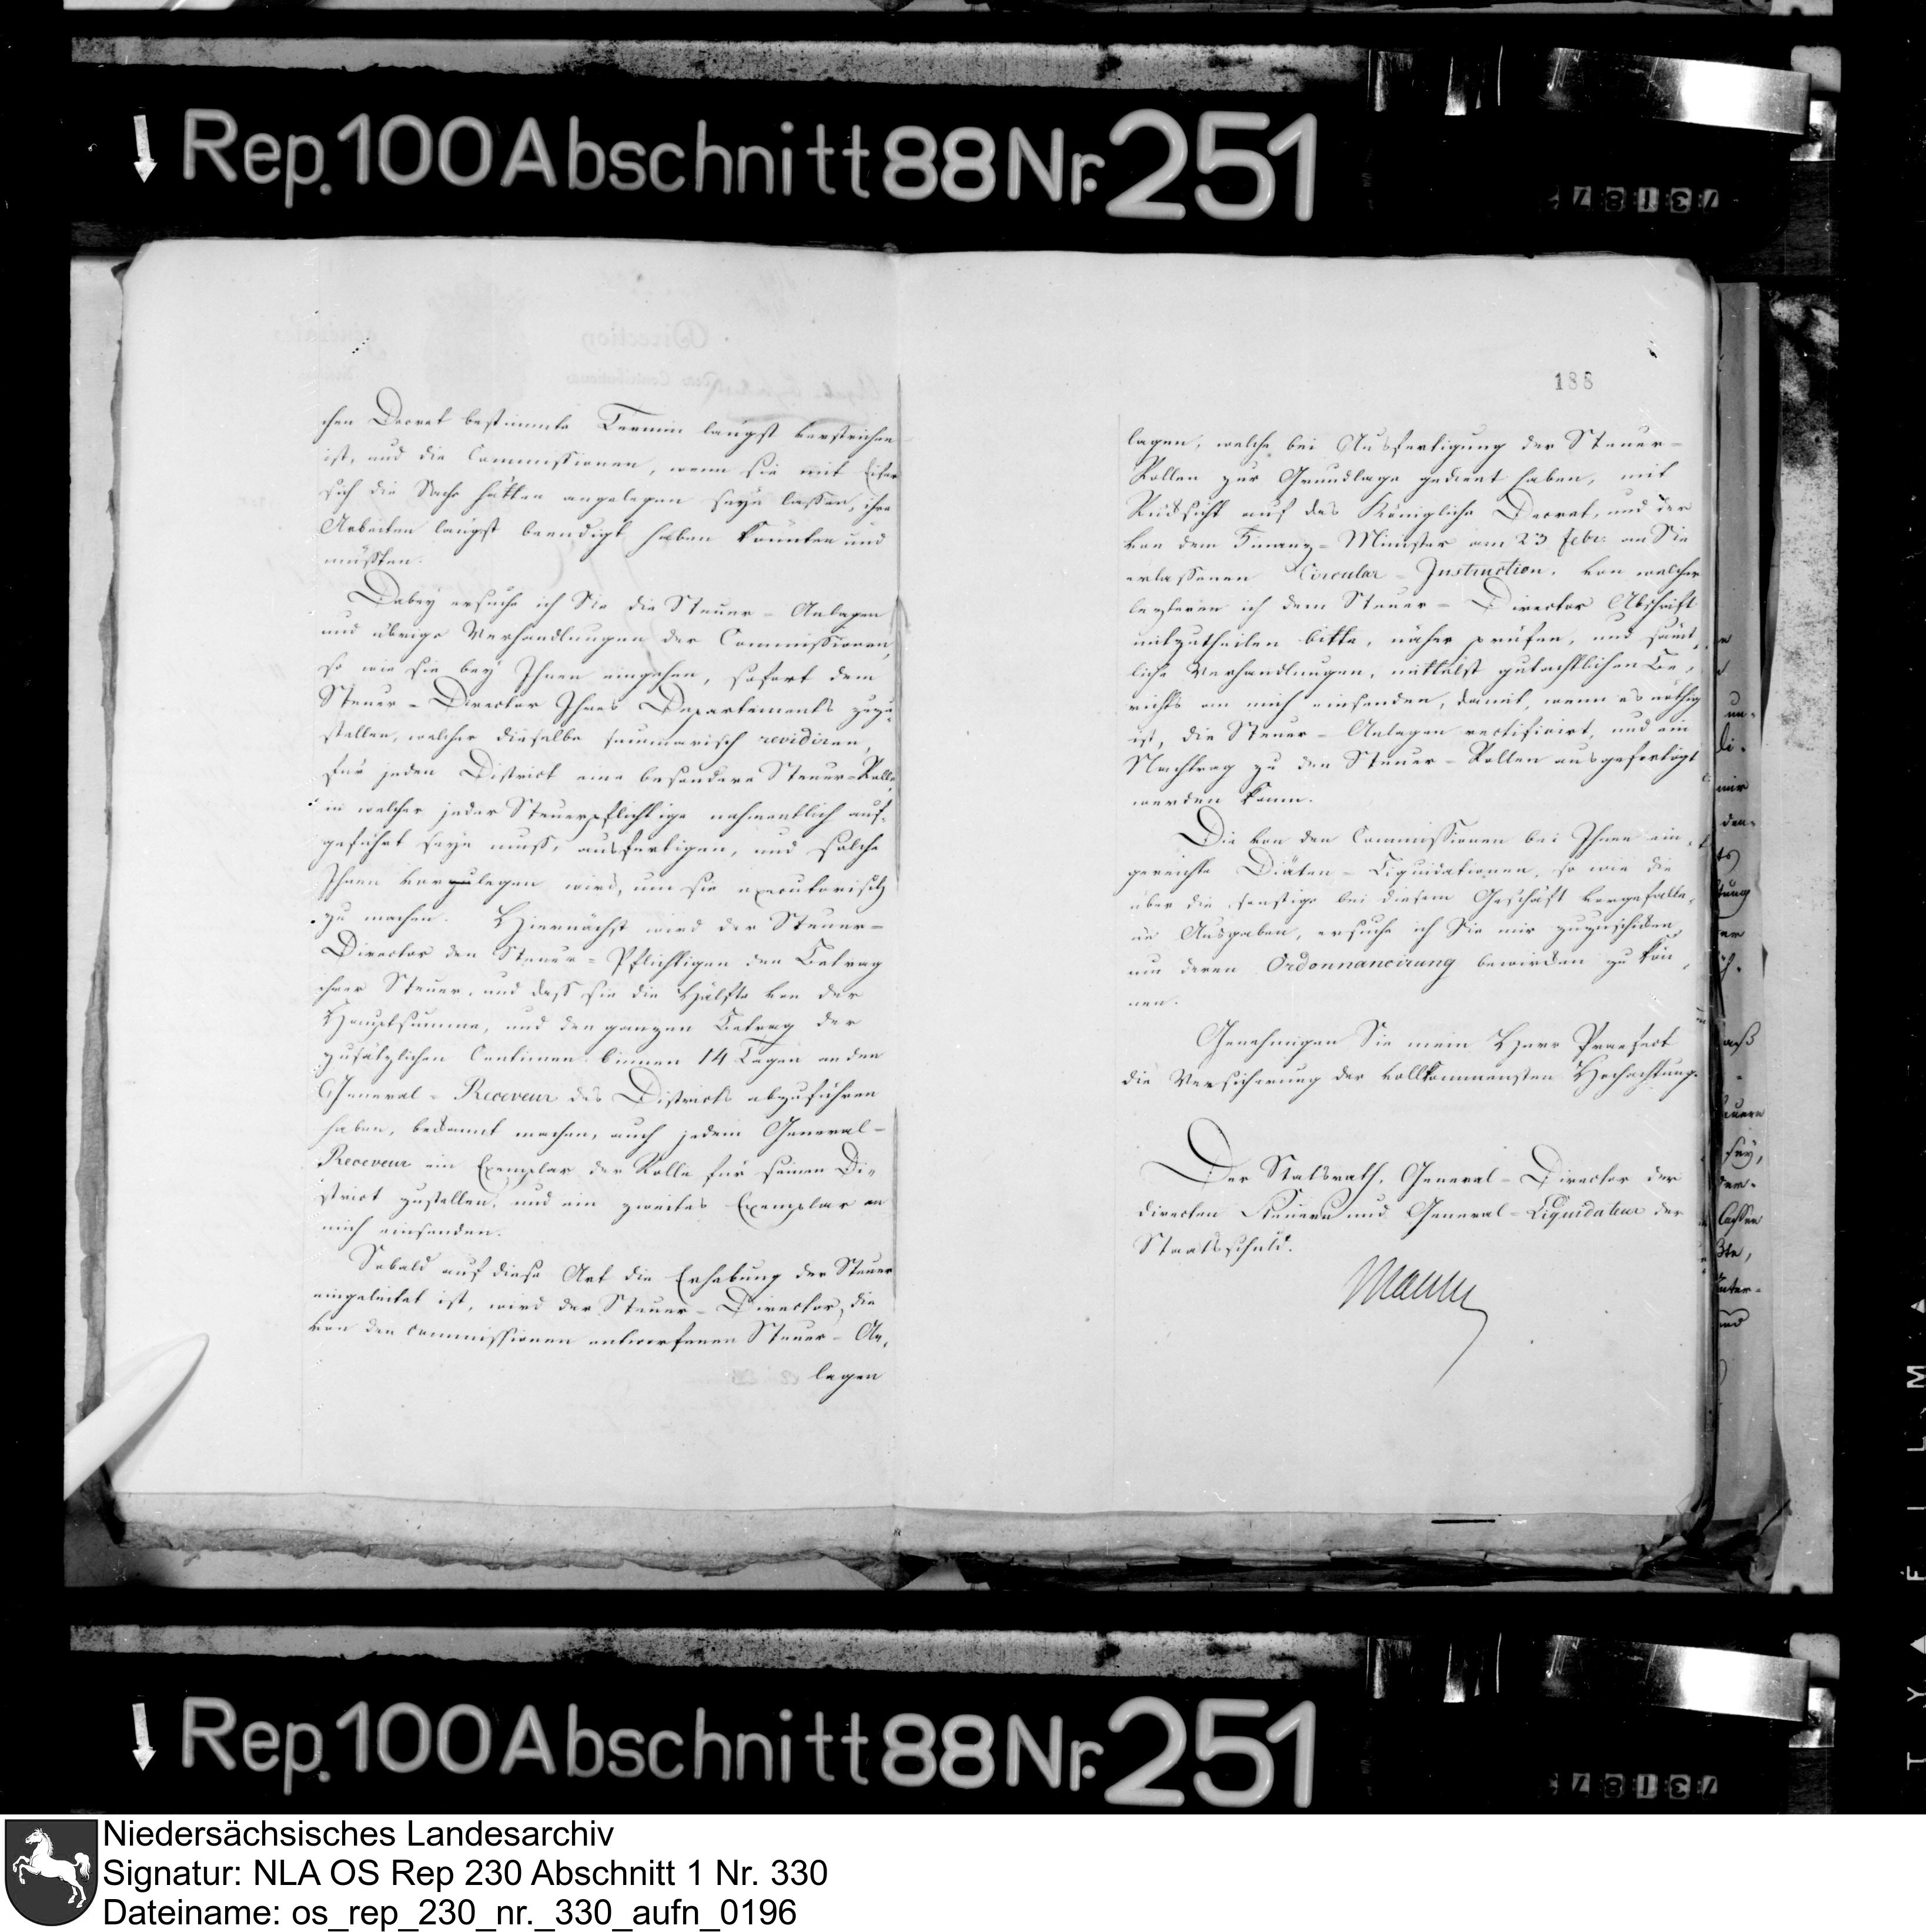 Rep. 100 Abschnitt 88 Nr. 251
73187
chen Decret bestimmte Termin längst verstrichen
ist, und die Commissionen, wenn sie mit Eifer
sich die Sache hätten angelegen seyn lassen, ihre
Arbeiten längst beendigt haben könnten und
müßten.
Dabey ersuche ich Sie die Steuer-Anlagen
und übrige Verhandlungen der Commissionen,
so wie sie bey Ihnen eingehen, sofort dem
Steuer-Director Ihres Departements zuzu-
stellen, welcher dieselbe summarisch revidiren,
für jeden District eine besondere Steuer-Rolle,
in welcher jeder Steuerpflichtige nahmentlich auf-
geführt seyn muß, ausfertigen, und solche
Ihnen vorzulegen wird, um sie executorisch
zu machen. Hiernächst wird der Steuer-
Director den Steuer-Pflichtigen den Betrag
ihrer Steuer, und daß sie die Hälfte von der
Hauptsumme, und den ganzen Betrag der
zusätzlichen Centimen binnen 14 Tagen an den
General-Receveur des Districts abzuführen
haben, bekannt machen, auch jedem General-
Receveur ein Exemplar der Rolle für seinen Di-
strict zustellen, und ein zweites Exemplar an
mich einsenden.
Sobald auf diese Art die Erhebung der Steuer
eingeleitet ist, wird der Steuer-Director, die
von den Commissionen entworfenen Steuer-An-
lagen
188
lagen, welche bei Ausfertigung der Steuer-
Rollen zur Grundlage gedient haben, mit
Rücksicht auf das Königliche Decret, und der
von dem Finanz-Minister am 23 Febr. an Sie
erlassenen Circular-Instruction, von welcher
lezteren ich dem Steuer-Director Abschrift
mitzutheilen bitte, näher prüfen, und sämt-
liche Verhandlungen, mittelst gutachtlichen Be-
richts an mich einsenden, damit, wenn es nöthig
ist, die Steuer-Anlagen rectificirt, und ein
Nachtrag zu den Steuer-Rollen ausgefertigt
werden kann.
Die von den Commissionen bei Ihnen ein-
gereichte Diäten-Liquidationen, so wie die
über die sonstige bei diesem Geschäft vorgefalle-
ne Ausgaben, ersuche ich Sie mir zuzuschicken,
um deren Ordonnancirung bewirken zu kön-
nen.
Genehmigen Sie mein Herr Praefect
die Versicherung der vollkommensten Hochachtung.
Der Statsrath, General-Director der
directen Steuern und General-Liquidateur der
Staatsschuld.
Rep. 100 Abschnitt 88 Nr. 251
73187
Niedersächsisches Landesarchiv
Signatur: NLA OS Rep 230 Abschnitt 1 Nr. 330
Dateiname: os_rep_230_nr._330_aufn_0196